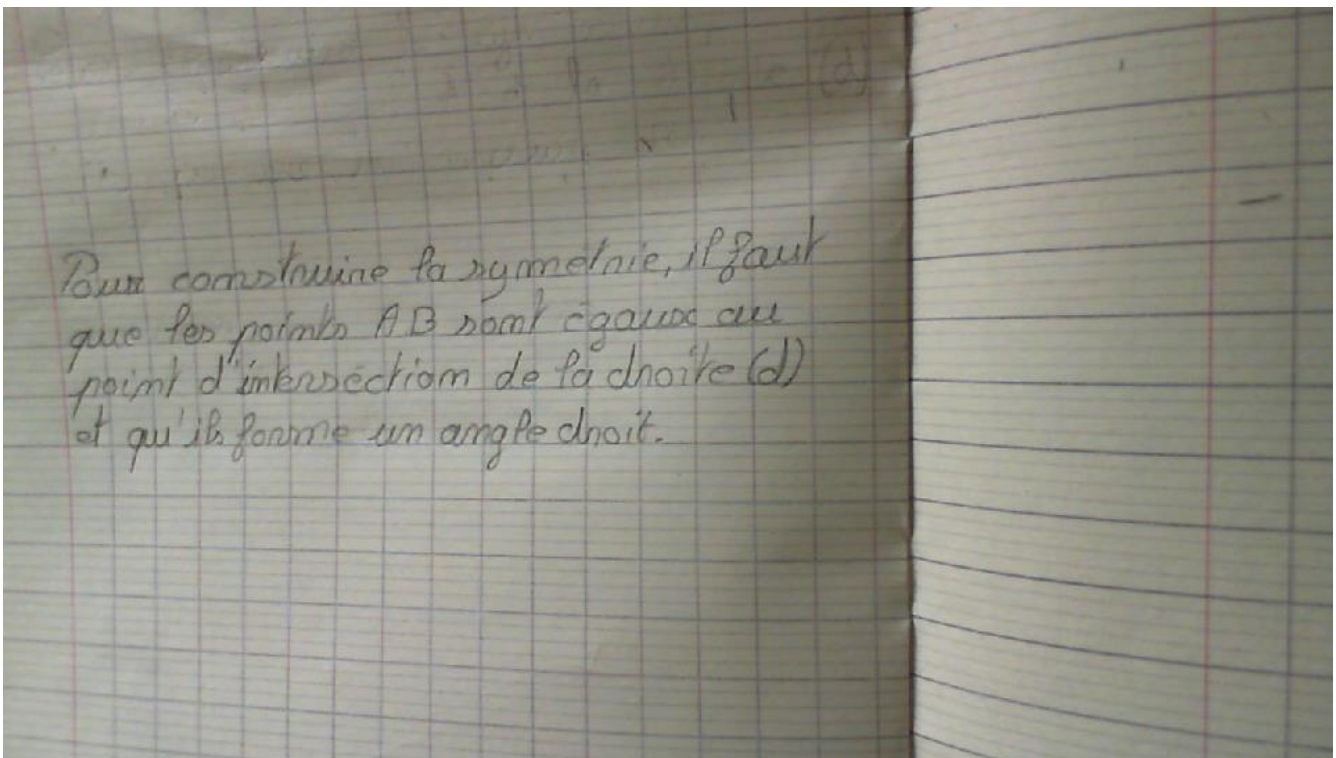 (d)
Pour construire la symétrie, il faut
que les points AB sont égaux au
point d'intersection de la droite (d)
et qu'ils forme un angle droit.